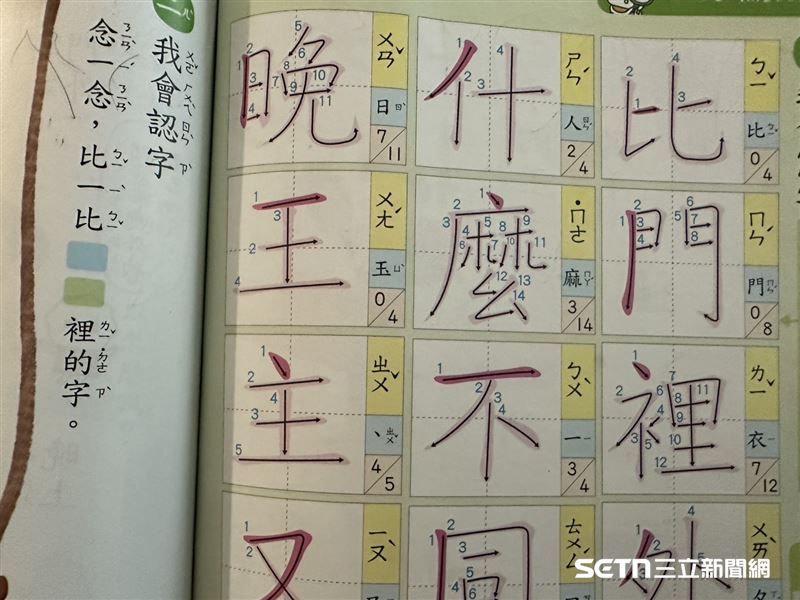 一
我會認字
ㄨㄛˇ ㄏㄨㄟˋ ㄖㄣˋ ㄗˋ
念一念，比一比
裡的字。
比 ㄅㄧˇ 比 0/4
門 ㄇㄣˊ 門 0/8
裡 ㄌㄧˇ 衣 7/12
ㄨㄞˋ 夕
什 ㄕㄣˊ 人 2/4
麼 ˙ㄇㄜ 麻 3/14
不 ㄅㄨˋ 一 3/4
同 ㄊㄨㄥˊ
晚 ㄨㄢˇ 日 7/11
王 ㄨㄤˊ 玉 0/4
主 ㄓㄨˇ 丶 4/5
又 ㄧㄡˋ
SETN三立新聞網